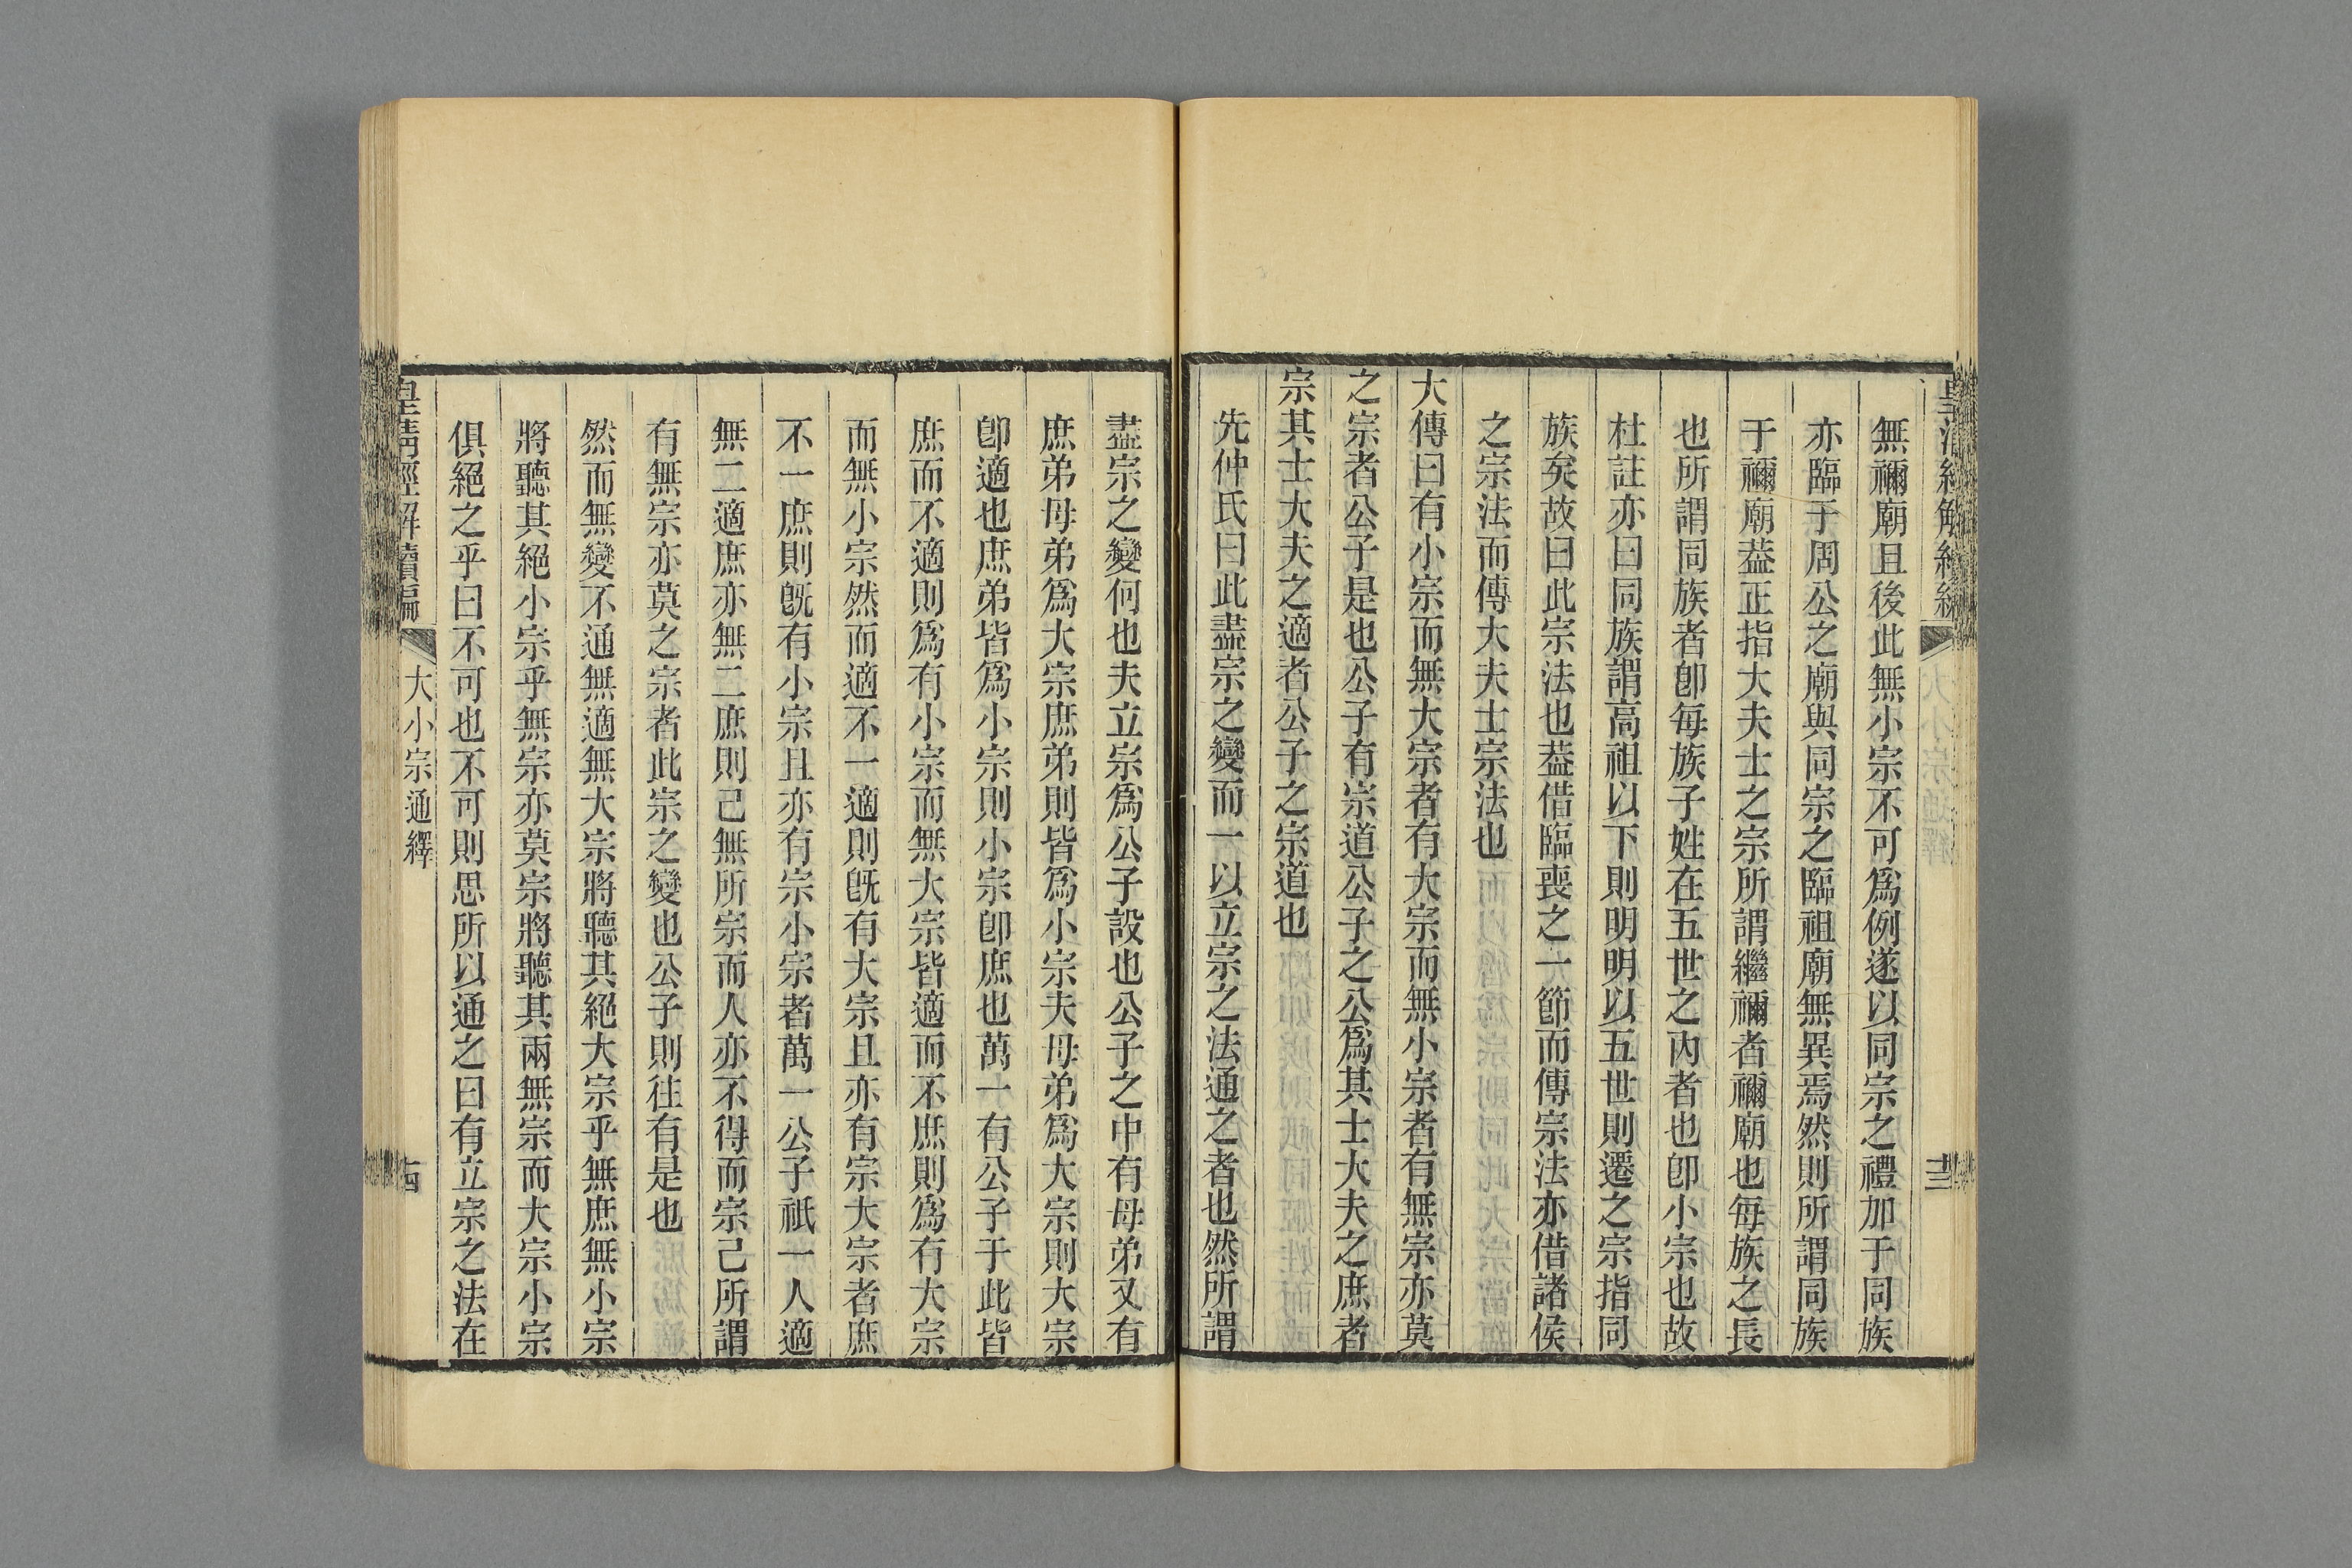 無禰廟且後此無小宗不可爲例遂以同宗之禮加于同族
亦臨于周公之廟與同宗之臨祖廟無異焉然則所謂同族
于禰廟葢正指大夫士之宗所謂繼禰者禰廟也每族之長
也所謂同族者卽每族子姓在五世之內者也卽小宗也故
杜註亦曰同族謂高祖以下則明明以五世則遷之宗指同
族矣故曰此宗法也葢借臨喪之一節而傳宗法亦借諸侯
之宗法而傳大夫士宗法也
大傳曰有小宗而無大宗者有大宗而無小宗者有無宗亦莫
之宗者公子是也公子有宗道公子之公爲其士大夫之庶者
宗其士大夫之適者公子之宗道也
先仲氏曰此盡宗之變而一以立宗之法通之者也然所謂
盡宗之變何也夫立宗爲公子設也公子之中有母弟又有
庶弟母弟爲大宗庶弟則皆爲小宗夫母弟爲大宗則大宗
卽適也庶弟皆爲小宗則小宗卽庶也萬一有公子于此皆
庶而不適則爲有小宗而無大宗皆適而不庶則爲有大宗
而無小宗然而適不一適則旣有大宗且亦有宗大宗者庶
不一庶則旣有小宗且亦有宗小宗者萬一公子祇一人適
無二適庶亦無二庶則己無所宗而人亦不得而宗己所謂
有無宗亦莫之宗者此宗之變也公子則往有是也
然而無變不通無適無大宗將聽其絕大宗乎無庶無小宗
將聽其絕小宗乎無宗亦莫宗將聽其兩無宗而大宗小宗
俱絕之乎曰不可也不可則思所以通之曰有立宗之法在
皇淸經解續編 大小宗通繹 十四